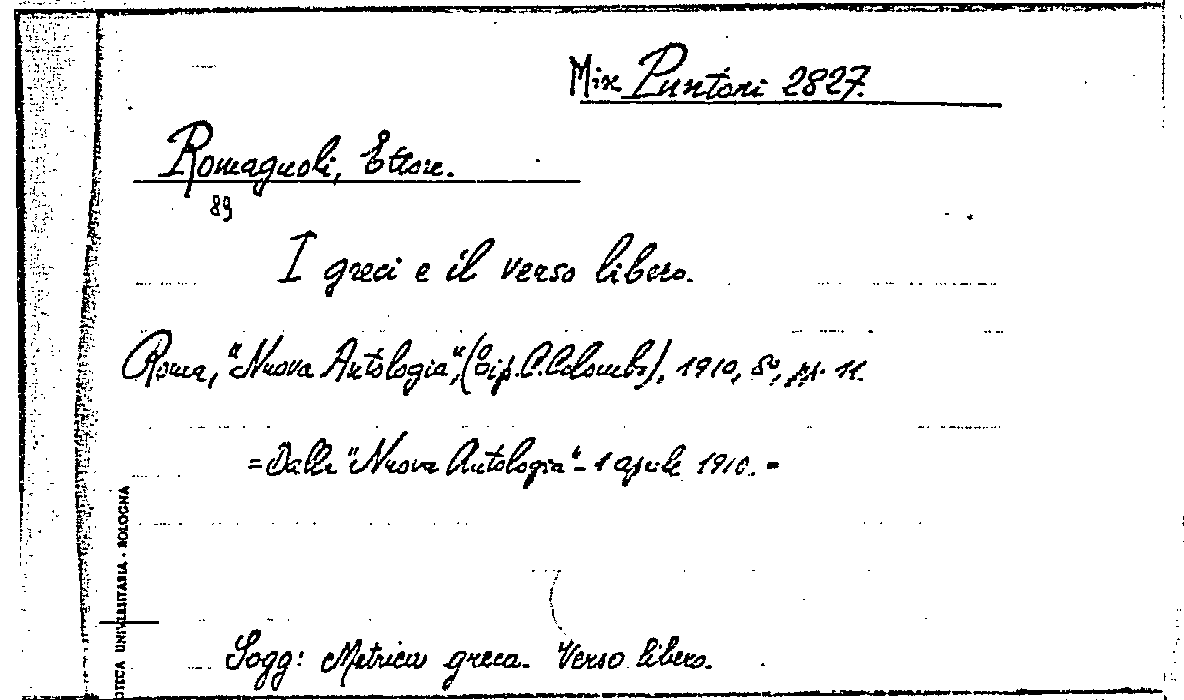 Mix Puntoni 2827.
Romagnoli, Ettore.
89
I greci e il verso libero.
Roma, "Nuova Antologia", (Tip. C. Colombo), 1910, 8º, pp. 11.
= Dalla "Nuova Antologia" - 1 aprile 1910. =
Sogg: Metrica greca. Verso libero.
OTECA UNIVERSITARIA - BOLOGNA